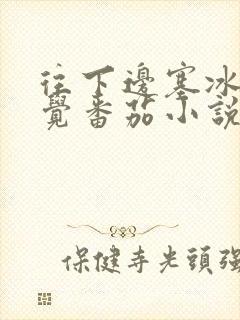 往下邊塞冰
覺番茄小說
保健寺光頭強